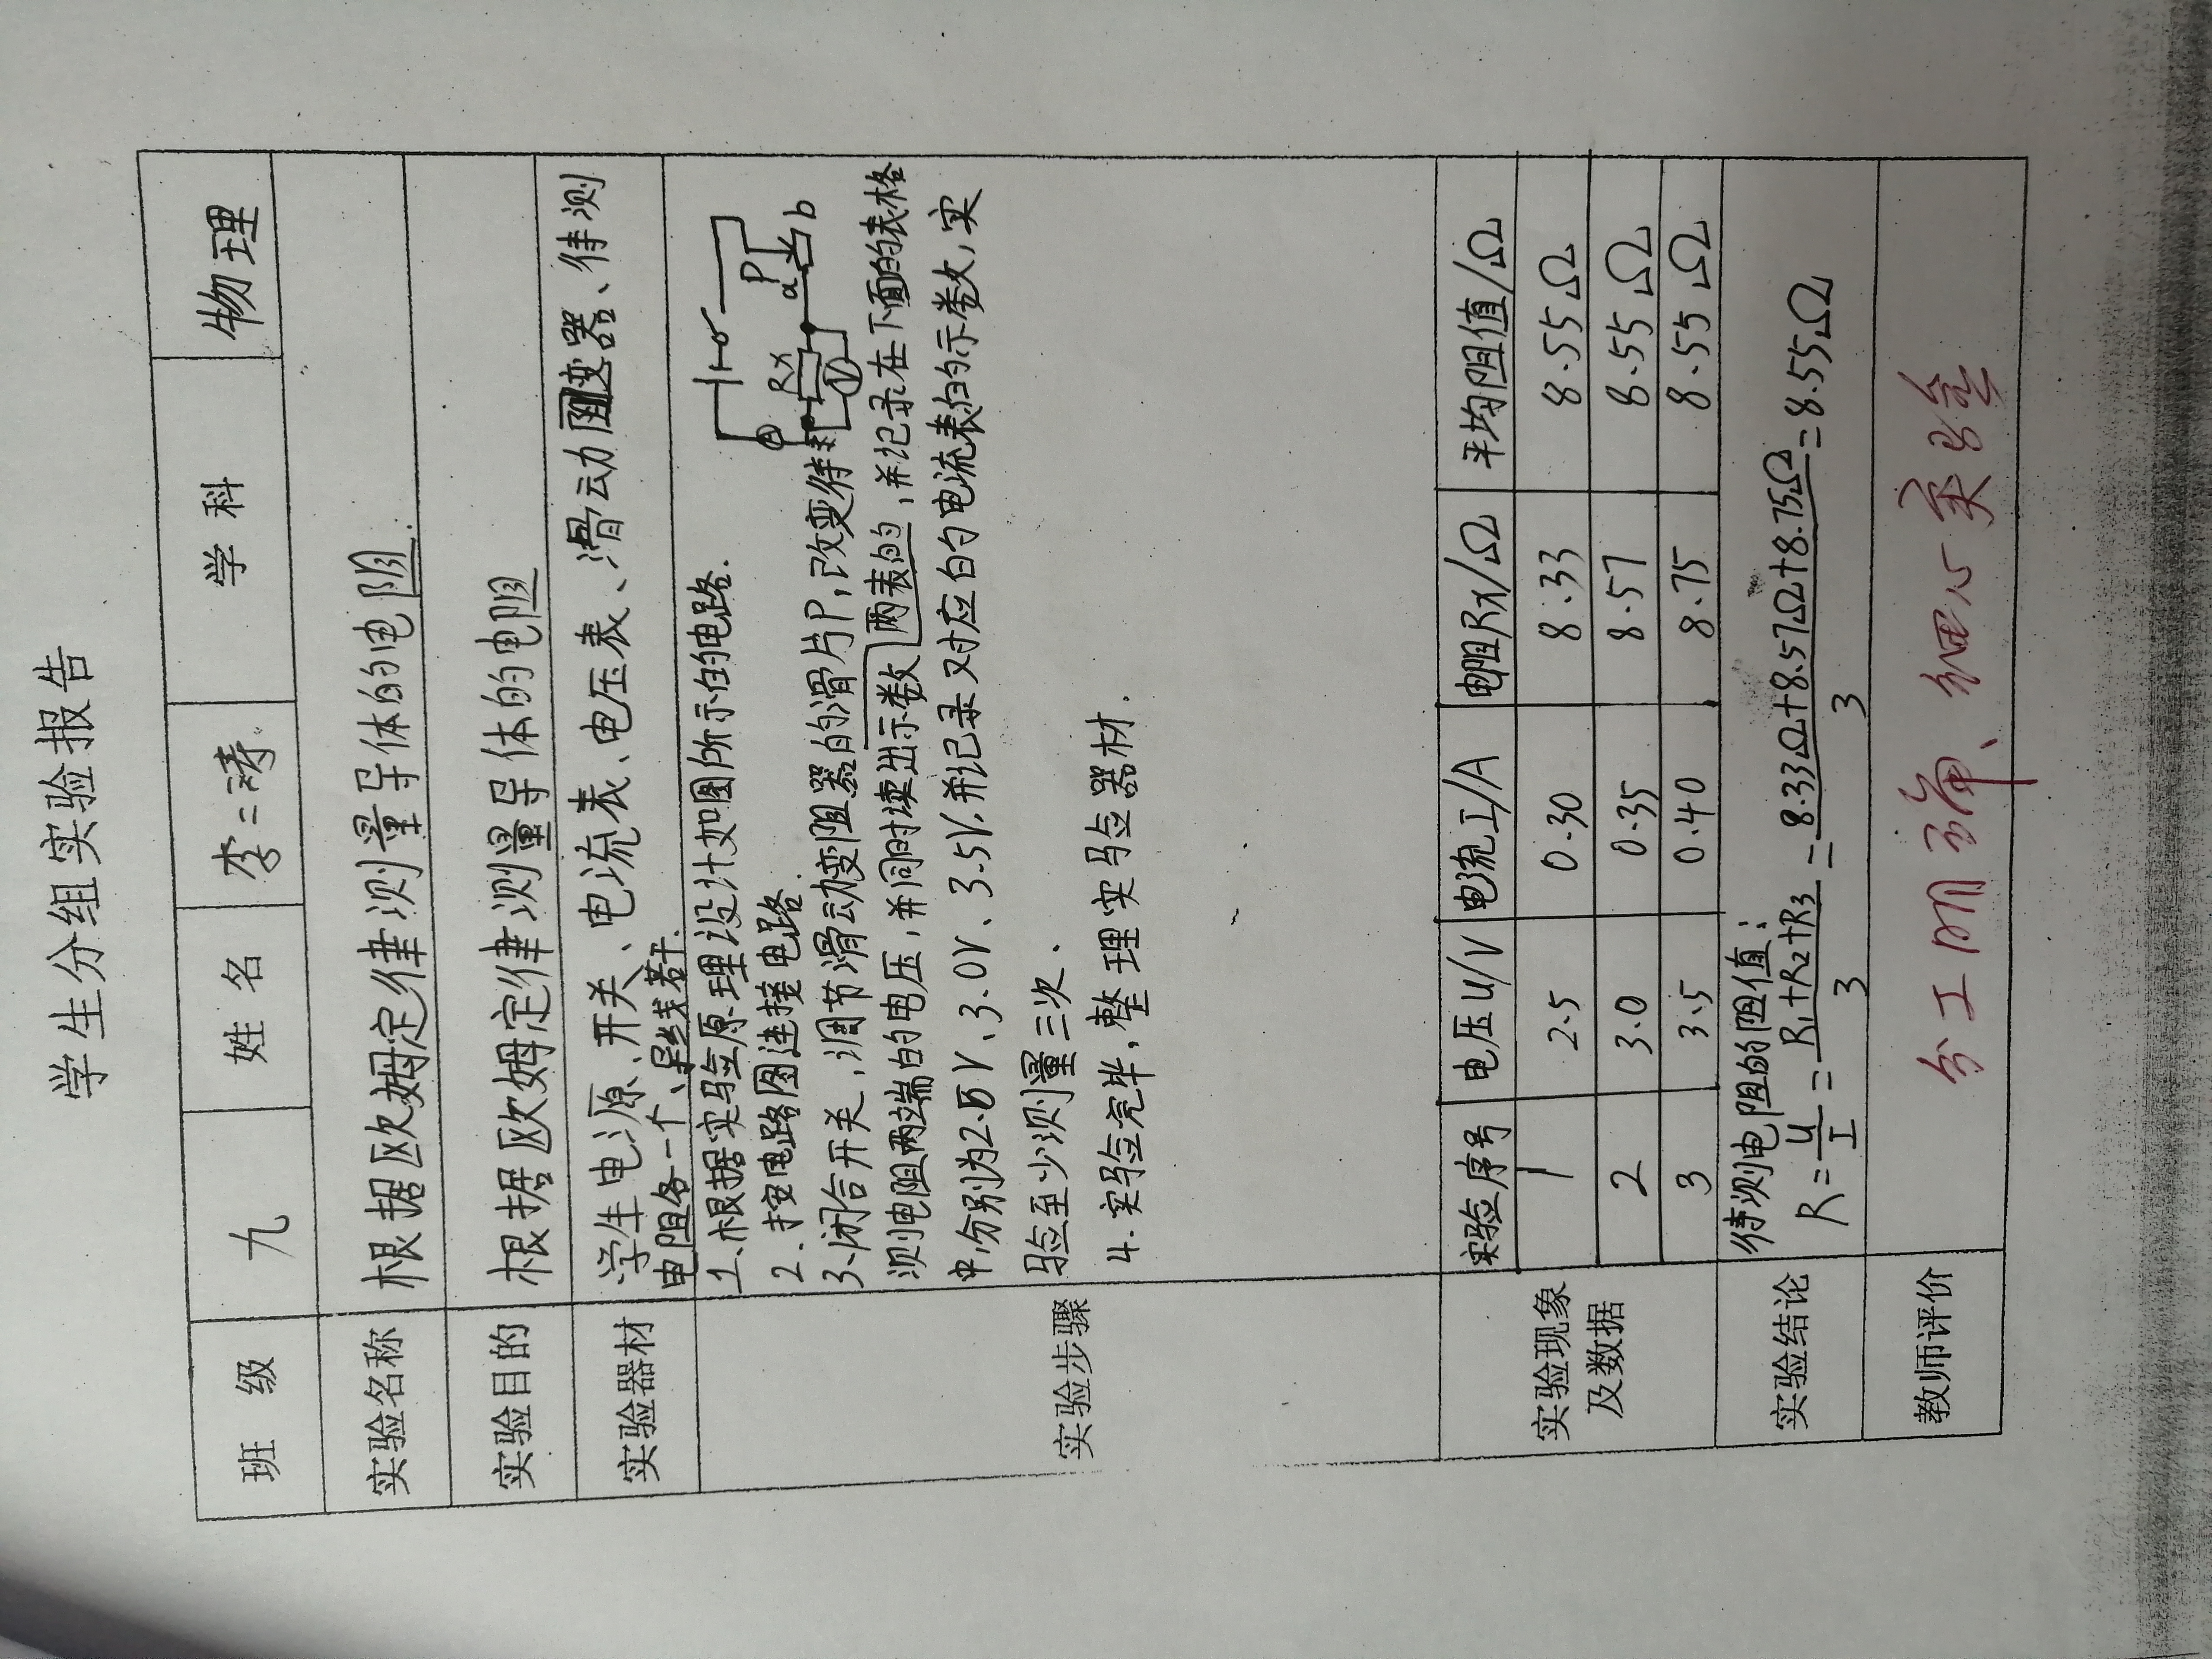 学生分组实验报告
班 级 九 姓 名 李二涛 学 科 物理
实验名称 根据欧姆定律测量导体的电阻.
实验目的 根据欧姆定律测量导体的电阻
实验器材 学生电源、开关、电流表、电压表、滑动阻变器、待测
电阻各一个、导线若干.
实验步骤
1.根据实验原理设计如图所示的电路.
2.按电路图连接电路.
3.闭合开关,调节滑动变阻器的滑片P,改变待
测电阻两端的电压,并同时读出示数两表的,并记录在下面的表格
中,分别为2.5V、3.0V、3.5V.并记录对应的电流表的示数,实
验至少测量三次.
4.实验完毕,整理实验器材.
Rx
A
V
P
a
b
实验现象
及数据
实验序号 电压U/V 电流I/A 电阻Rx/Ω 平均阻值/Ω
1 2.5 0.30 8.33 8.55Ω
2 3.0 0.35 8.57 8.55Ω
3 3.5 0.40 8.75 8.55Ω
实验结论 待测电阻的阻值:
R=U/I=R1+R2+R3/3=8.33Ω+8.57Ω+8.75Ω/3=8.55Ω
教师评价 分工明确、细心实验